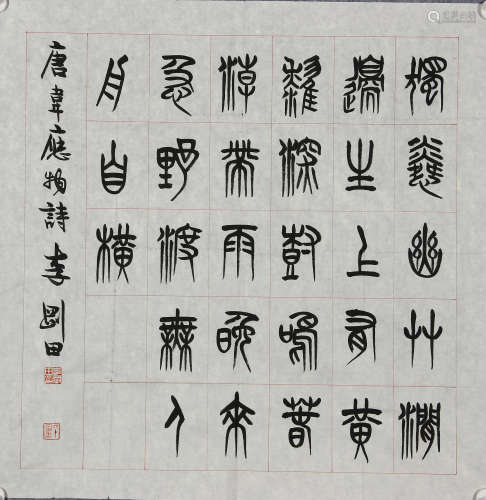 獨憐幽艸澗
邊生上有黃
鸝深尌鳴春
潮帶雨晚來
急野渡無人
舟自橫
唐韋應物詩李剛田